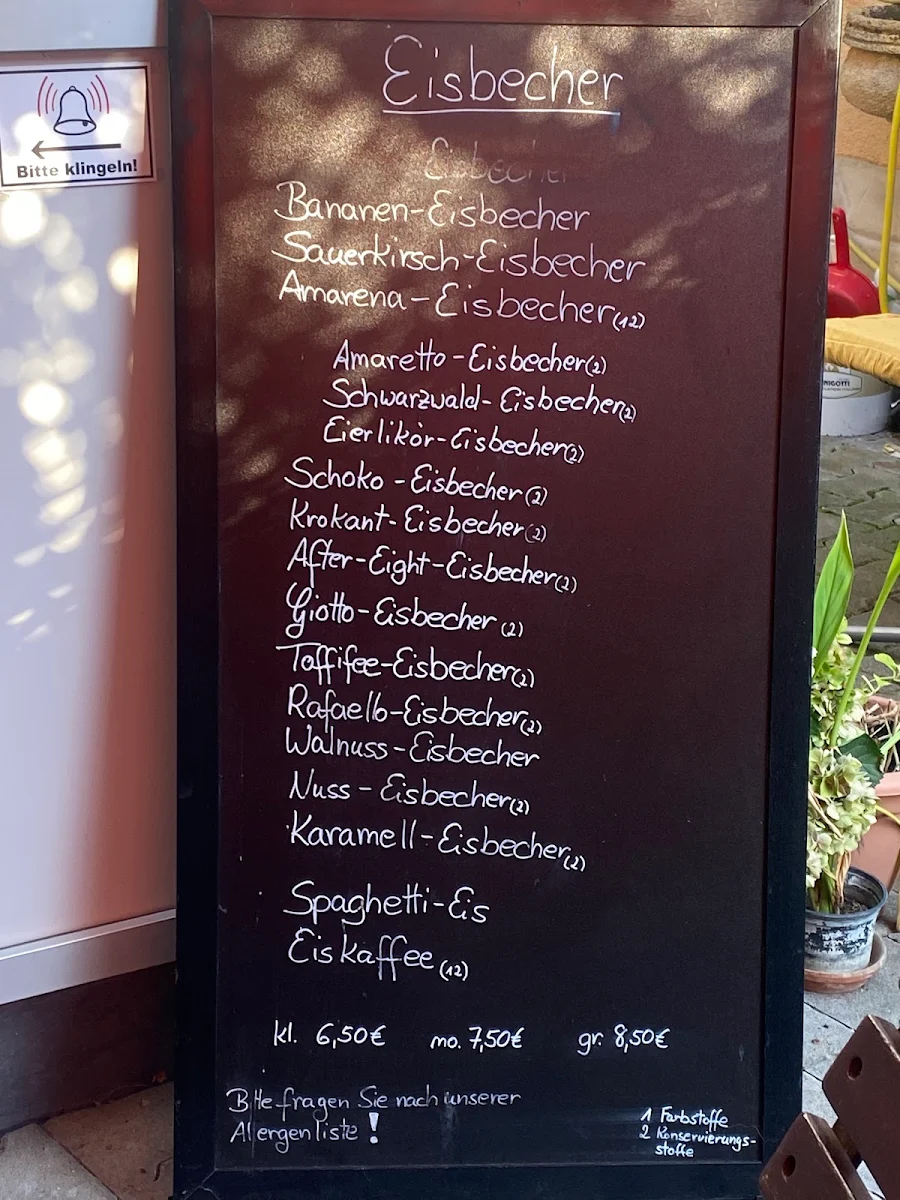 Eisbecher
Eisbecher
Bitte klingeln!
Bananen-Eisbecher
Sauerkirsch-Eisbecher
Amarena-Eisbecher(12)
Amaretto-Eisbecher(2)
Schwarzwald-Eisbecher(2)
Eierlikör-Eisbecher(2)
Schoko-Eisbecher(2)
Krokant-Eisbecher(2)
After-Eight-Eisbecher(2)
Giotto-Eisbecher(2)
Toffifee-Eisbecher(2)
Rafaello-Eisbecher(2)
Walnuss-Eisbecher
Nuss-Eisbecher(2)
Karamell-Eisbecher(2)
Spaghetti-Eis
Eiskaffee(12)
kl. 6,50€ mo. 7,50€ gr. 8,50€
Bitte fragen Sie nach unserer
Allergenliste!
1 Farbstoffe
2 Konservierungs-
stoffe